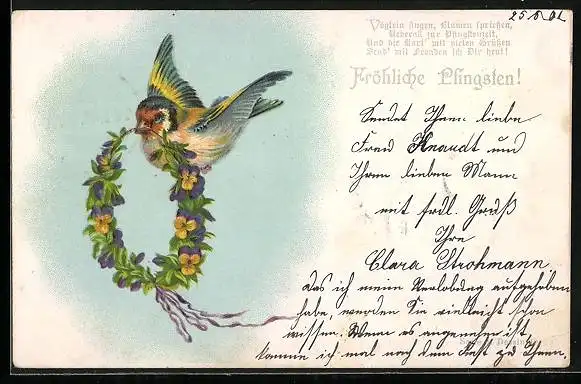 25/5 02
Vöglein singen, Blumen sprießen,
Ueberall zur Pfingstenzeit,
Und die Kart' mit vielen Grüßen
Send' mit Freuden ich Dir heut!
Fröhliche Pfingsten!
Sendet Ihnen liebe
Frau Knaudt und
Ihrem lieben Mann
mit frdl. Gruß
Ihre
Clara Strohmann
Das ich meine Verlobung aufgehoben
habe, werden Sie vielleicht schon
wissen. Wenn es angenehm ist
komme ich mal nach dem Fest zu Ihnen.